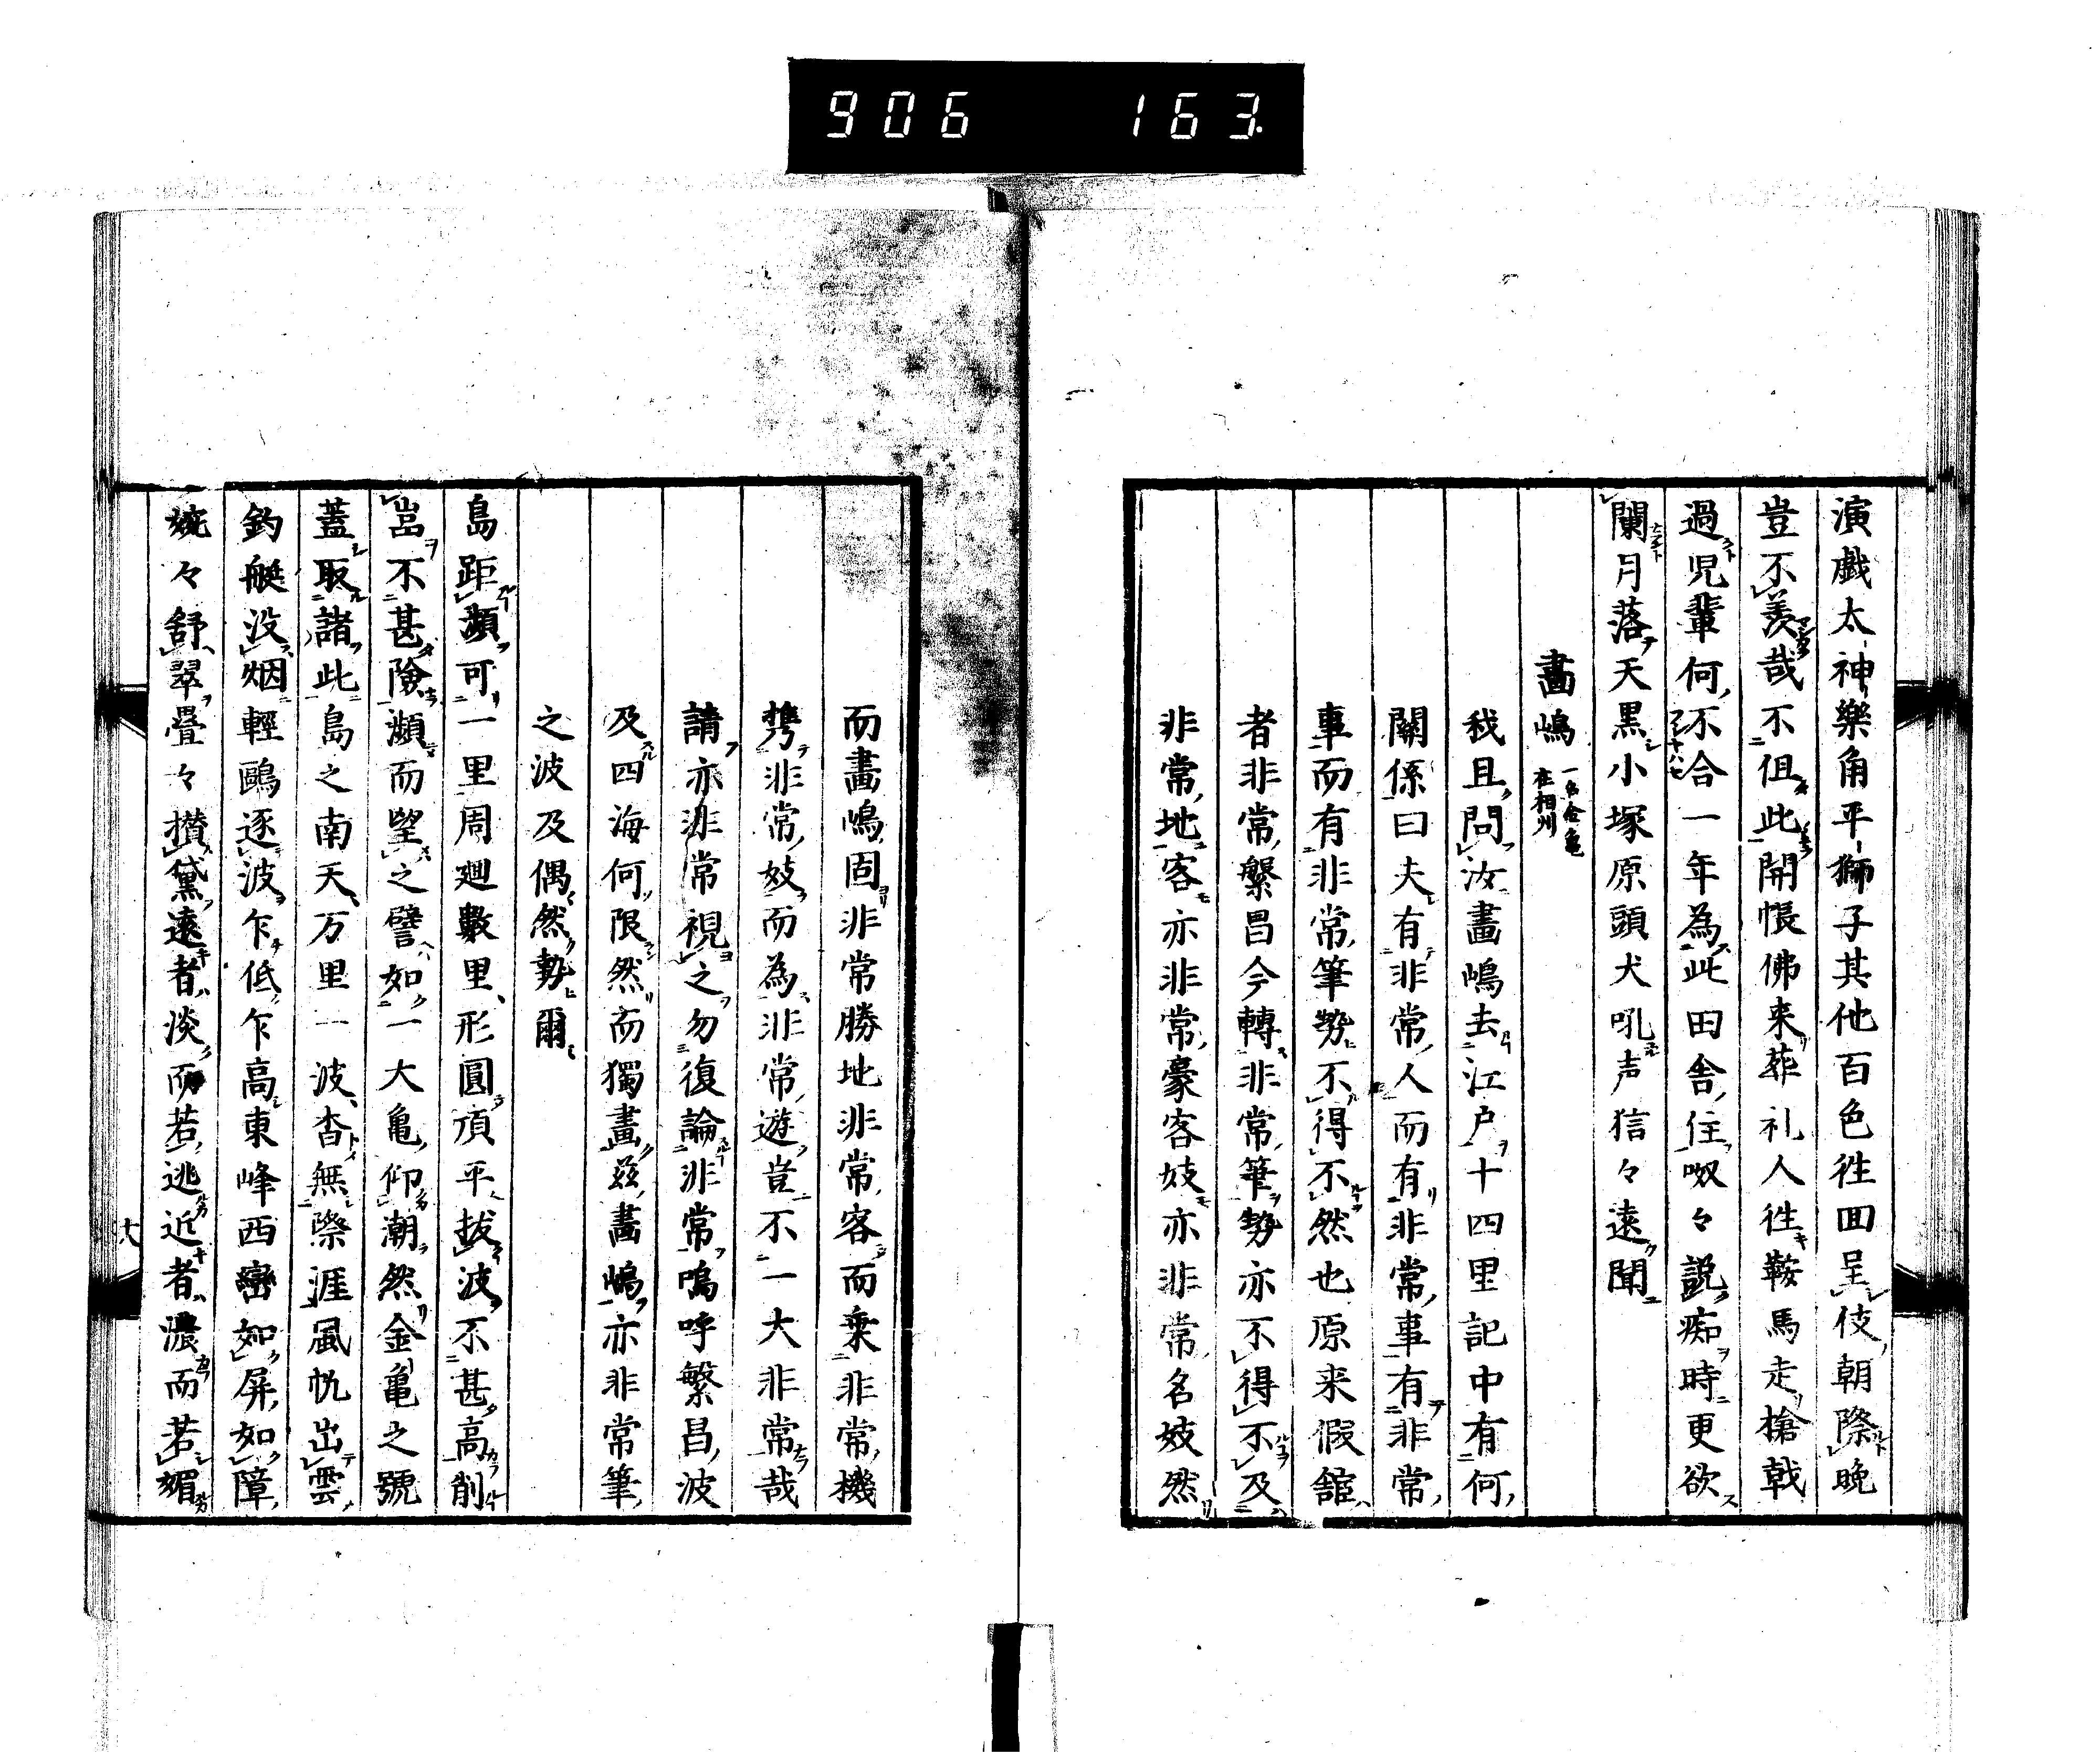 906 163
演戯太神樂角平獅子其他百色徃囬呈伎朝際晩
豈不羨哉不徂此開帳佛来葬礼人徃鞍馬走槍戟
過児輩何不合一年為此田舎住呶々説痴時更欲
闌月落天黒小塚原頭犬吼声信々遠聞
畵嶋 一名金亀 在相州
我且問汝畵嶋去江户十四里記中有何
關係曰夫有非常人而有非常事有非常
事而有非常筆勢不得不然也原来假舘
者非常繁昌今轉非常筆勢亦不得不及
非常地客亦非常豪客妓亦非常名妓然
而畵嶋固非常勝地非常客而乗非常機
携非常妓而為非常遊豈不一大非常哉
請亦非常視之勿復論非常嗚呼繁昌波
及四海何限然而獨畵兹畵嶋亦非常筆
之波及偶然勢爾
島距瀕可一里周廻數里形圓頂平拔波不甚高削
嵓不甚險瀕而望之譬如一大亀仰潮然金亀之號
蓋取諸此島之南天万里一波杳無際涯風帆出雲
釣艇没烟輕鷗逐波乍低乍高東峰西巒如屏如障
婉々舒翠疊々攅黛遠者淡而若逃近者濃而若媚